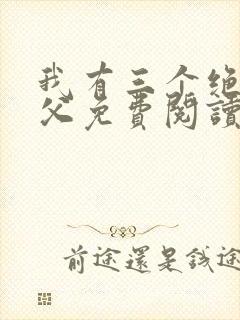 我有三个绝
父免費閱讀
前途還是錢途